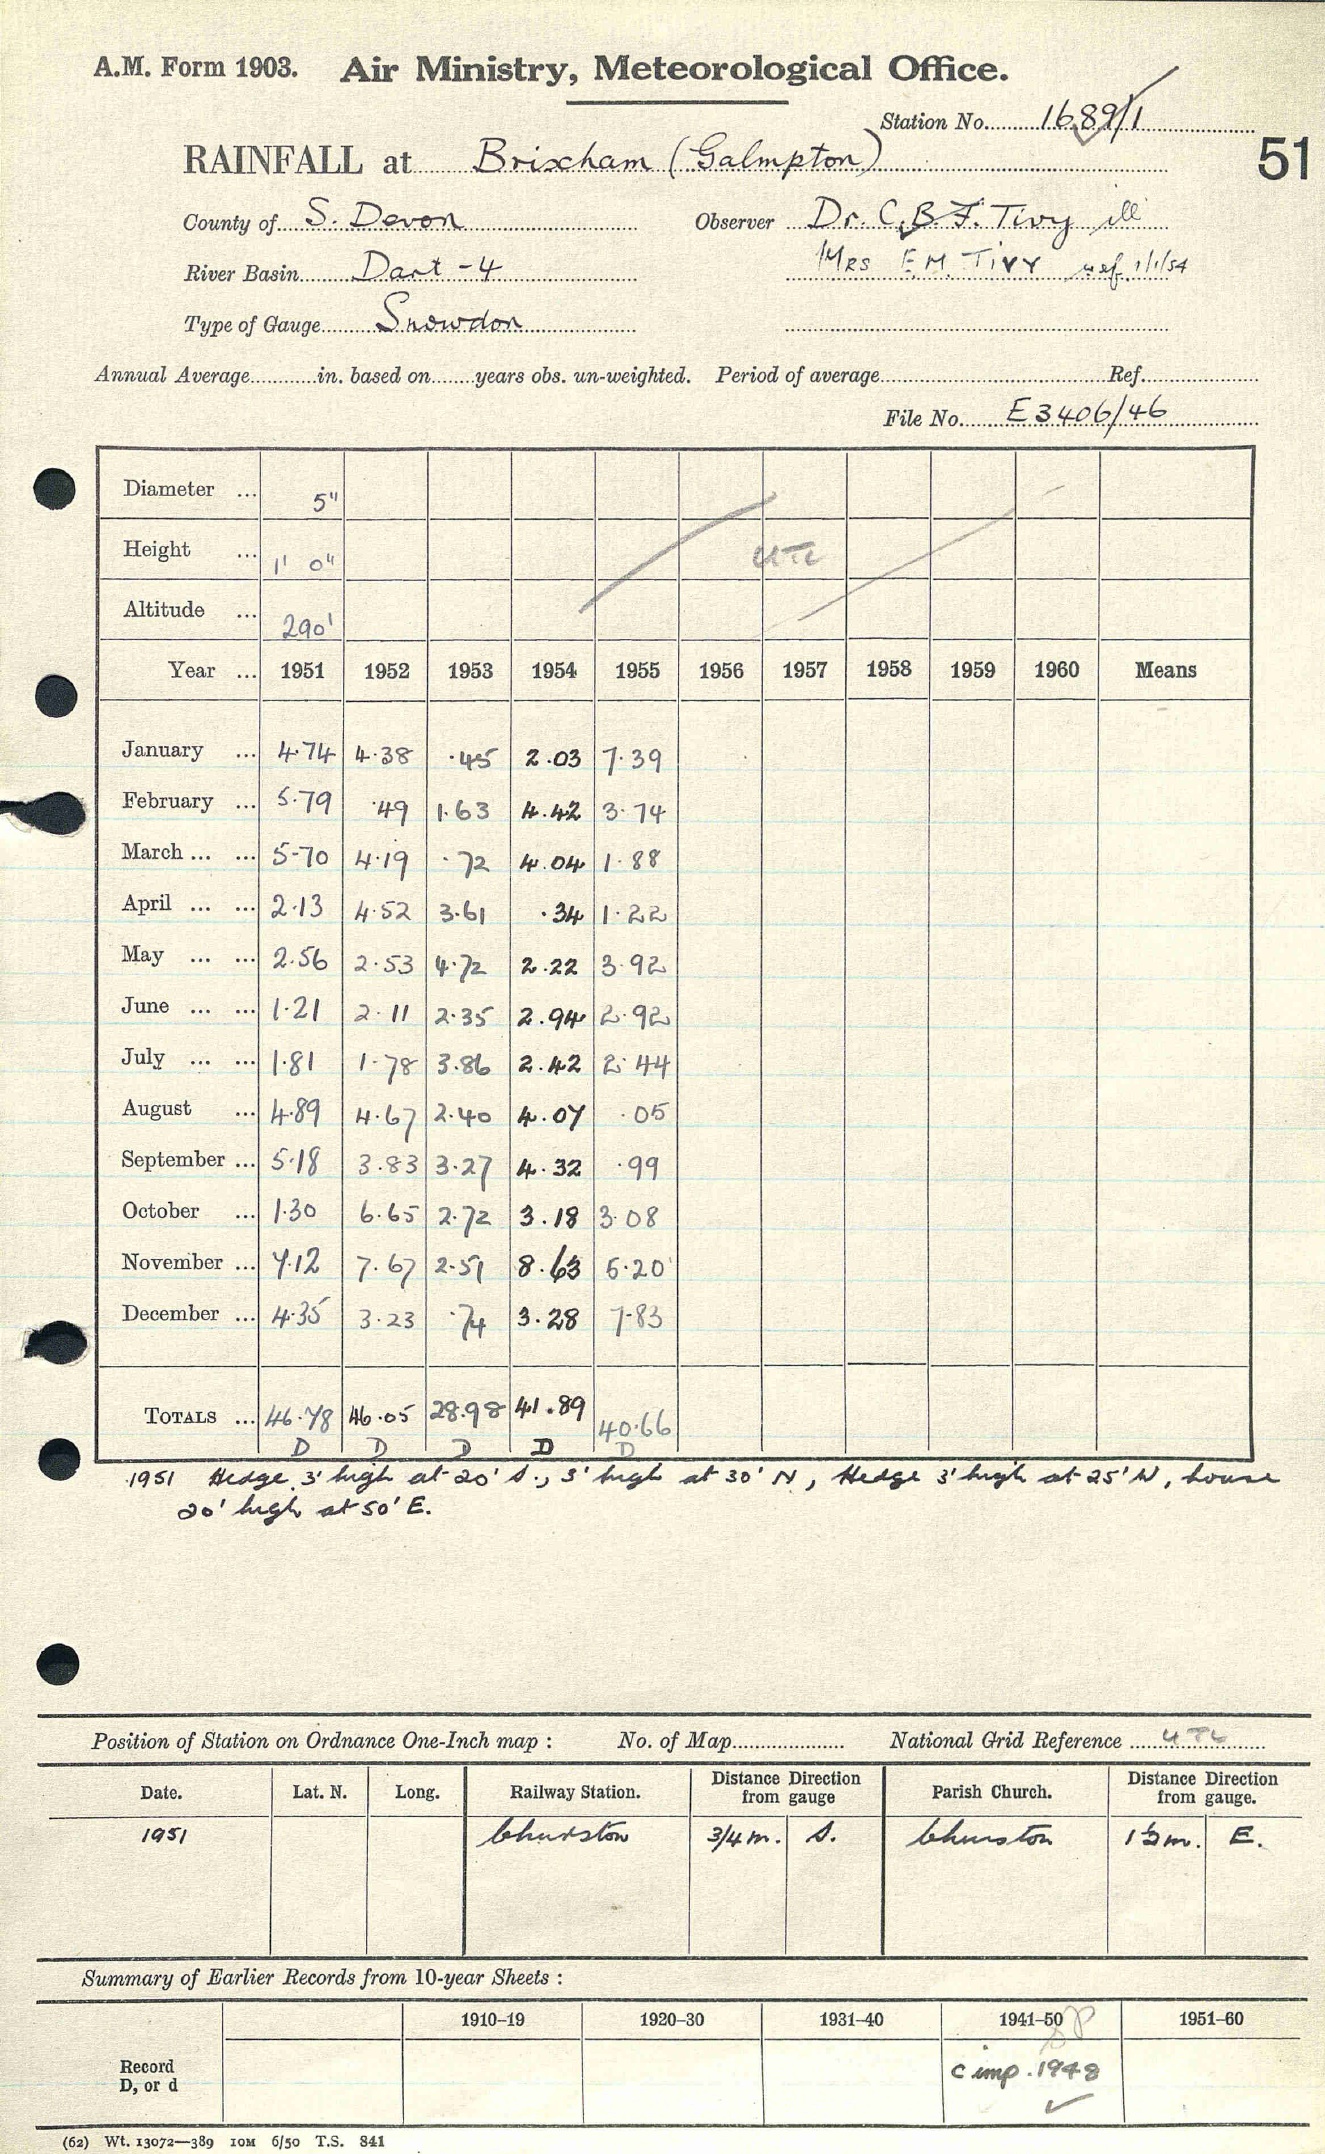 A.M. Form 1903. Air Ministry, Meteorological Office.
Station No. 1689/1
51
RAINFALL at Brixham (Galmpton)
County of S. Devon Observer Dr. C.B.F. Tivy ill
River Basin Dart - 4 Mrs E.M. TIVY 1/1/54
Type of Gauge Snowdon
Annual Average in. based on years obs. un-weighted. Period of average Ref.
File No. E3406/46
Diameter ... 5"
Height ... 1' 0" UTL
Altitude ... 290'
Year ... 1951 1952 1953 1954 1955 1956 1957 1958 1959 1960 Means
January ... 4.74 4.38 .45 2.03 7.39
February ... 5.79 .49 1.63 4.42 3.74
March ... ... 5.70 4.19 .72 4.04 1.88
April ... ... 2.13 4.52 3.61 .34 1.22
May ... ... 2.56 2.53 4.72 2.22 3.92
June ... ... 1.21 2.11 2.35 2.94 2.92
July ... ... 1.81 1.78 3.86 2.42 2.44
August ... 4.89 4.67 2.40 4.07 .05
September ... 5.18 3.83 3.27 4.32 .99
October ... 1.30 6.65 2.72 3.18 3.08
November ... 7.12 7.67 2.51 8.63 5.20
December ... 4.35 3.23 .74 3.28 7.83
TOTALS ... 46.78 46.05 28.98 41.89 40.66
D D D D D
1951 Hedge 3' high at 20' S., 3' high at 30' N, Hedge 3' high at 25' W, house
20' high at 50' E.
Position of Station on Ordnance One-Inch map : No. of Map National Grid Reference UTL
Date. Lat. N. Long. Railway Station. Distance Direction from gauge Parish Church. Distance Direction from gauge.
1951 Churston 3/4 m. S. Churston 1½ m. E.
Summary of Earlier Records from 10-year Sheets :
1910-19 1920-30 1931-40 1941-50 1951-60
Record D, or d C imp. 1948
(62) Wt. 13072—389 10M 6/50 T.S. 841